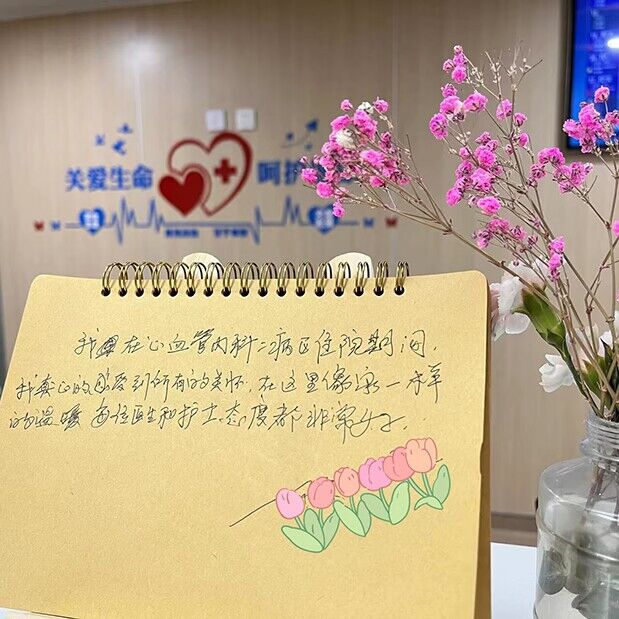 关爱生命 呵护
我在心血管内科二病区住院期间,
我真心的感受到所有的关怀,在这里像家一样
的温暖 每位医生和护士态度都非常好.